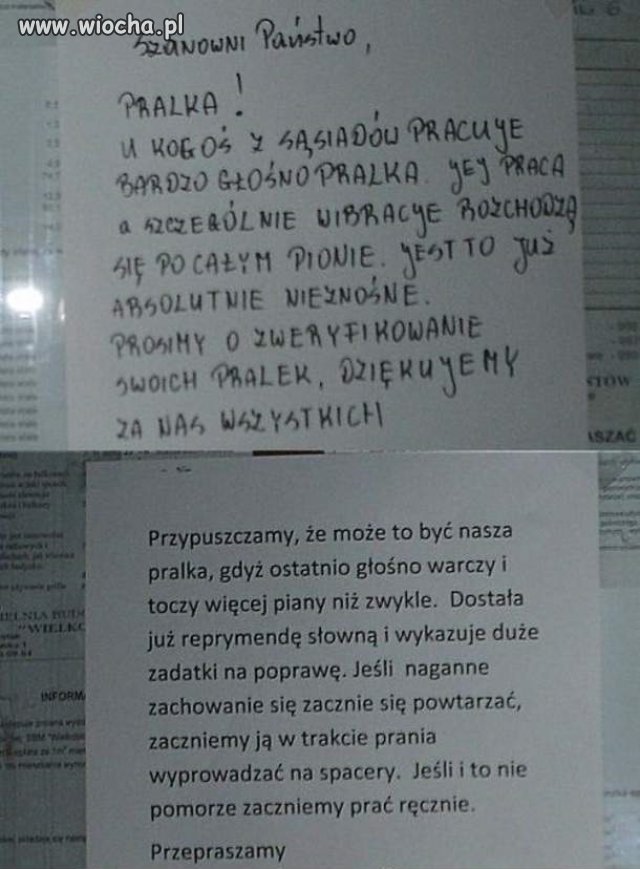 www.wiocha.pl
Szanowni Państwo,
PRALKA!
U KOGOŚ Z SĄSIADÓW PRACUJE
BARDZO GŁOŚNO PRALKA. JEJ PRACA
a SZCZEGÓLNIE WIBRACJE ROZCHODZĄ
SIĘ PO CAŁYM PIONIE. JEST TO JUŻ
ABSOLUTNIE NIEZNOŚNE.
PROSIMY O ZWERYFIKOWANIE
SWOICH PRALEK, DZIĘKUJEMY
ZA NAS WSZYSTKICH
ASZAĆ
Przypuszczamy, że może to być nasza
pralka, gdyż ostatnio głośno warczy i
toczy więcej piany niż zwykle. Dostała
już reprymendę słowną i wykazuje duże
zadatki na poprawę. Jeśli naganne
zachowanie się zacznie się powtarzać,
zaczniemy ją w trakcie prania
wyprowadzać na spacery. Jeśli i to nie
pomorze zaczniemy prać ręcznie.
Przepraszamy
INFORM